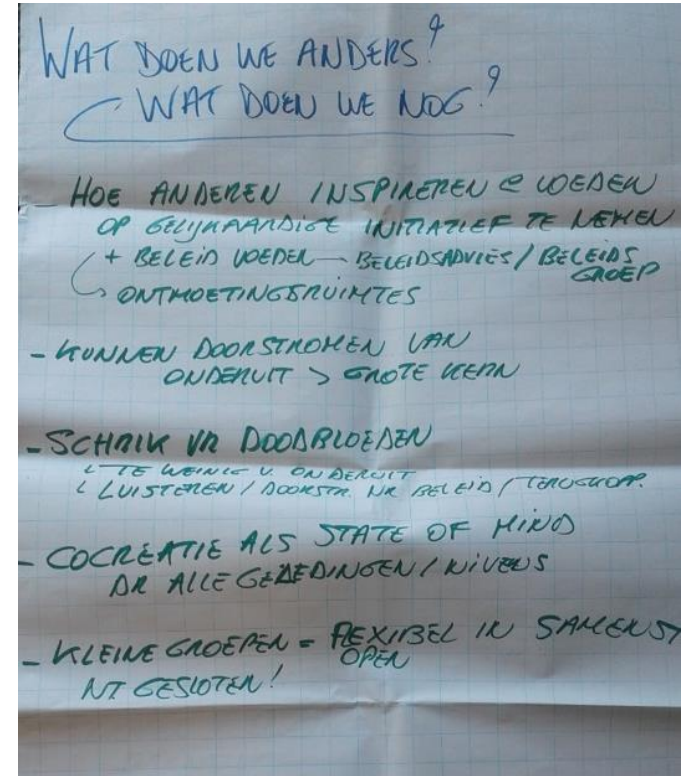 WAT DOEN WE ANDERS?
WAT DOEN WE NOG?
- HOE ANDEREN INSPIREREN & VOEDEN
OP GELIJKAARDIGE INITIATIEF TE NEMEN
+ BELEID VOEDEN - BELEIDSADVIES / BELEIDS
GROEP
ONTMOETINGSRUIMTES
- KUNNEN DOORSTROMEN VAN
ONDERUIT > GROTE KERN
- SCHRIK VR DOODBLOEDEN
TE WEINIG V. ONDERUIT
LUISTEREN / DOORSTR. NR BELEID / TERUGKOPP.
- COCREATIE ALS STATE OF MIND
DR ALLE GELEDINGEN / NIVEUS
- KLEINE GROEPEN = FLEXIBEL IN SAMENST
OPEN
NT GESLOTEN!